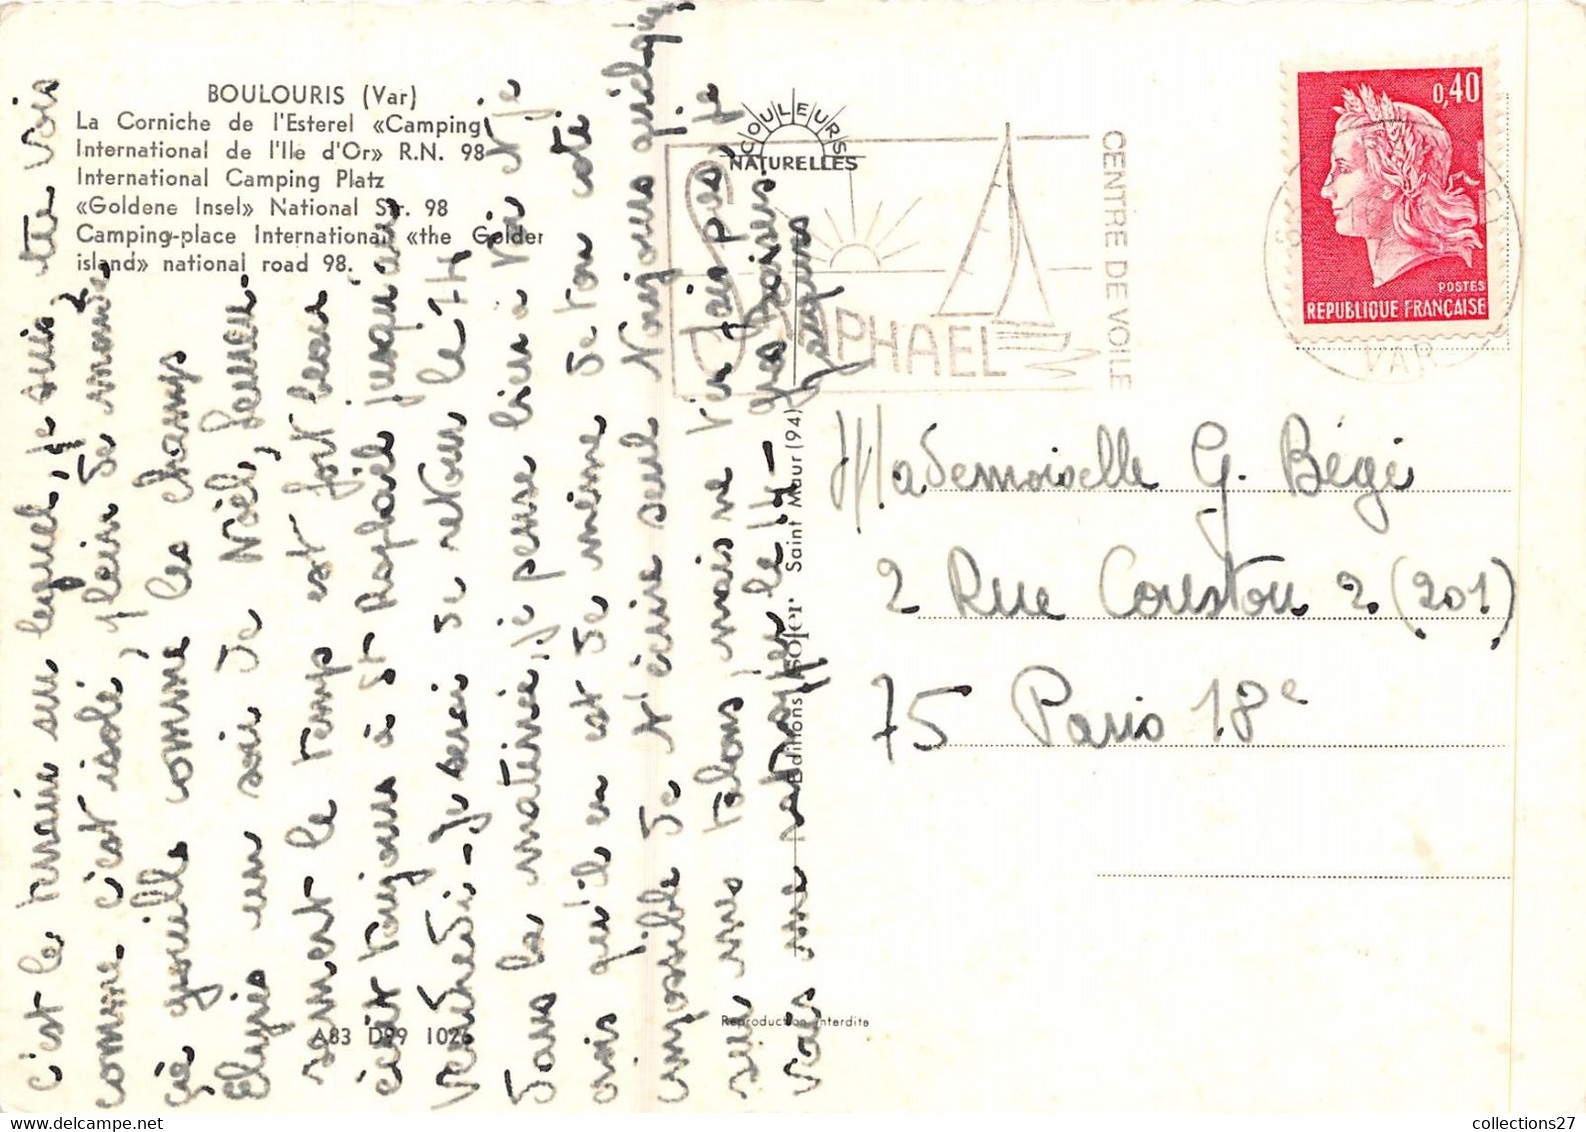 BOULOURIS (Var)
La Corniche de l'Esterel «Camping
International de l'Ile d'Or» R.N. 98
International Camping Platz
«Goldene Insel» National Str. 98
Camping-place International «the Golden
island» national road 98.
COULEURS
NATURELLES
RAPHAEL
CENTRE DE VOILE
0,40
POSTES
REPUBLIQUE FRANÇAISE
VAR
c'est le terrain sur lequel, je suis, tte vois
comme c'est isolé, plein de monde
qui grouille comme les champs
Elysées un soir de Noël, heureu-
sement le temps est fort beau
écrit toujours à St Raphaël jusqu'au
vendredi - Je serai de retour le 14
dans la matinée, je pense bien à toi et je
crois qu'il en est de même de ton côté
impossible de t'écrire seul toujours quelqu'
sur mes talons, mais ne t'en fais pas, je
vais me rattraper le 14 - Gros baisers
Jacques
Mademoiselle G. Bégé
2 Rue Coustou 2 (201)
75 Paris 18e
Editions SOFER Saint Maur (94)
Reproduction interdite
A83 D99 1026
collections27